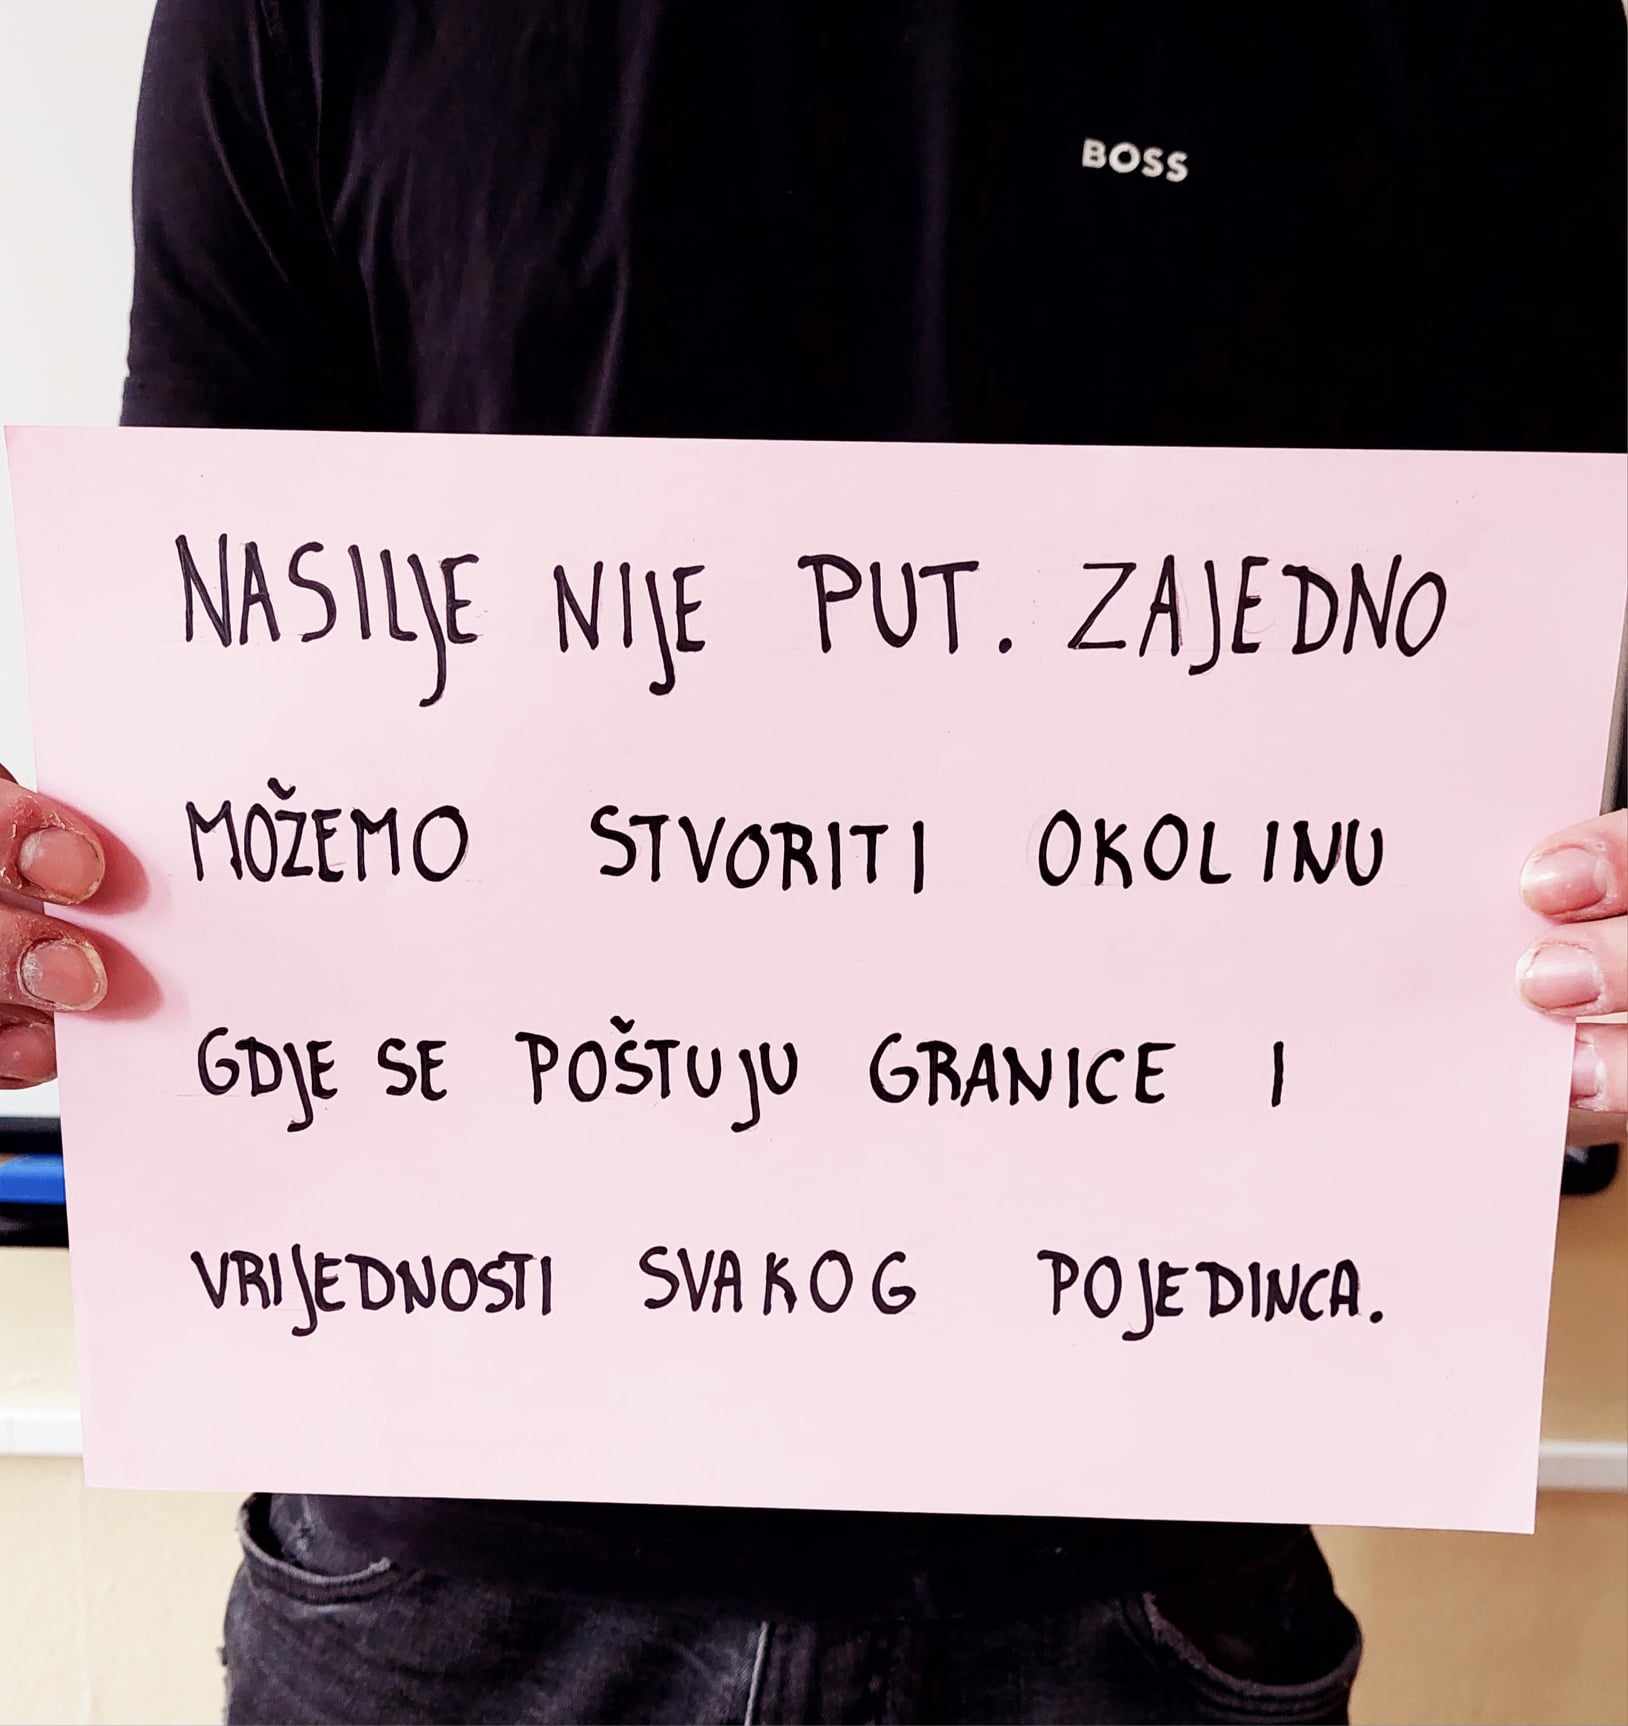 BOSS
NASILJE NIJE PUT. ZAJEDNO
MOŽEMO STVORITI OKOLINU
GDJE SE POŠTUJU GRANICE I
VRIJEDNOSTI SVAKOG POJEDINCA.